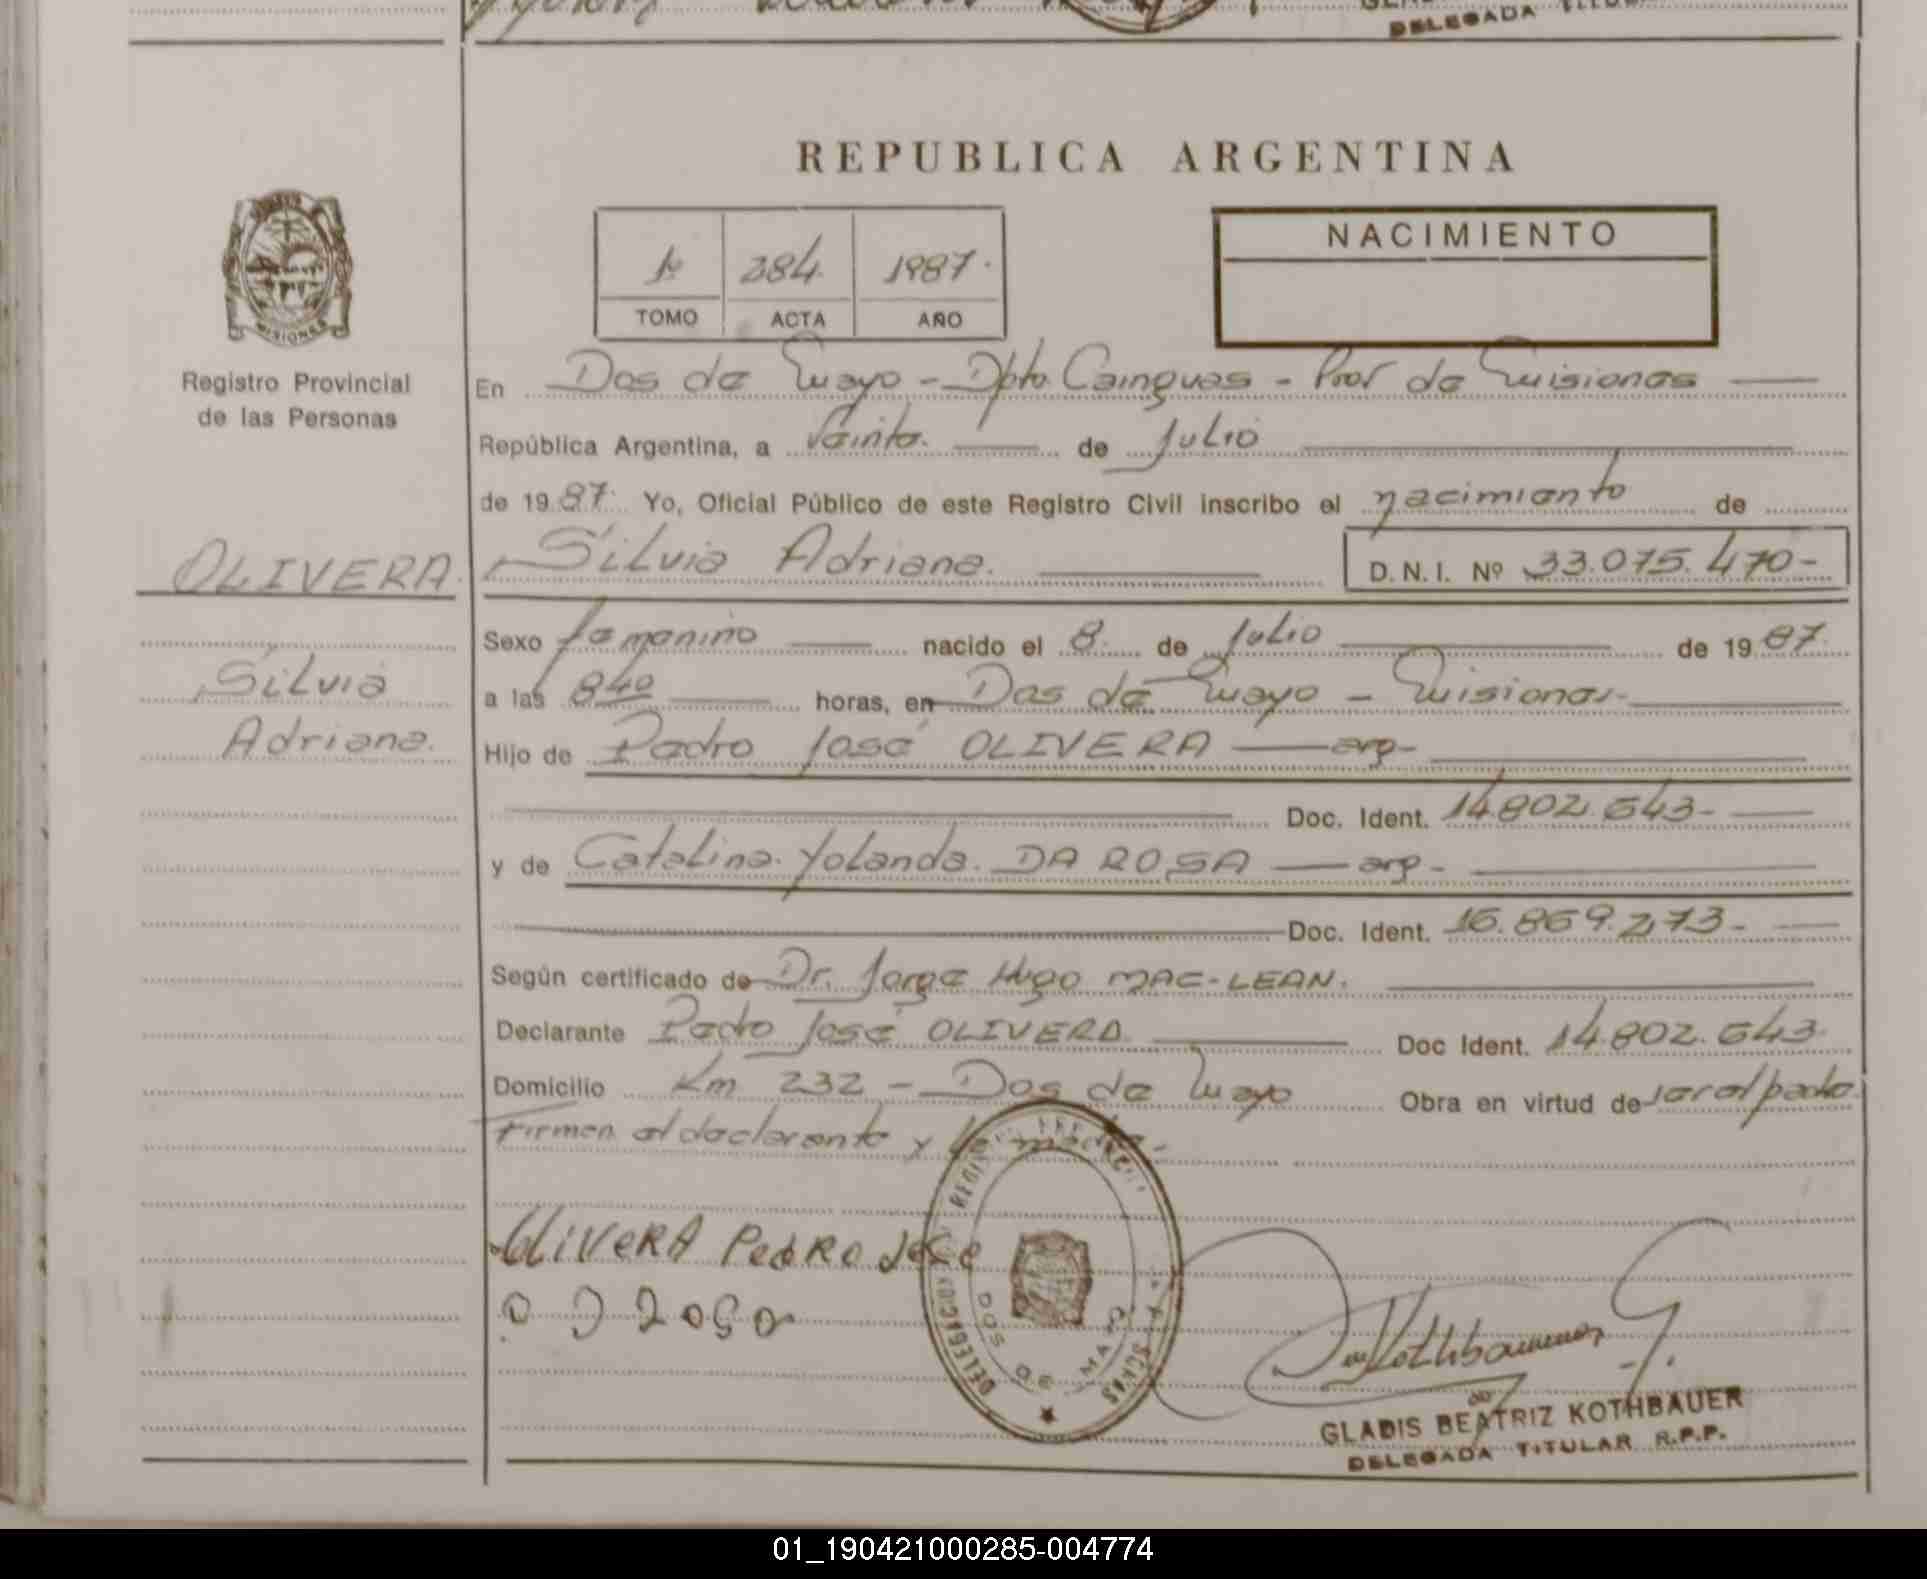 DELEGADA TITU
REPUBLICA ARGENTINA
NACIMIENTO
1º 384. 1987.
TOMO ACTA AÑO
MISIONES
Registro Provincial
de las Personas
En Dos de Mayo - Dpto. Cainguas - Prov de Misiones
República Argentina, a Veinte. de Julio
de 1987. Yo, Oficial Público de este Registro Civil inscribo el nacimiento de
OLIVERA. Silvia Adriana. D.N.I. Nº 33.075.470-
Sexo femenino nacido el 8. de Julio de 1987.
Silvia
a las 840 horas, en Dos de Mayo - Misiones.
Adriana.
Hijo de Pedro José OLIVERA arg-
Doc. Ident. 14.802.643-
y de Catalina Yolanda. DA ROSA arg-
Doc. Ident. 16.869.273-
Según certificado de Dr. Jorge Hugo MAC-LEAN.
Declarante Pedro José OLIVERA Doc Ident. 14.802.643.
Domicilio Km 232 - Dos de Mayo Obra en virtud de ser el padre.
Firman el declarante y la madre.-
OLIVERA PedRo Jose
DELEGACION DOS DE MAYO
Kothbauer G.
GLADIS BEATRIZ KOTHBAUER
DELEGADA TITULAR R.P.P.
01_190421000285-004774